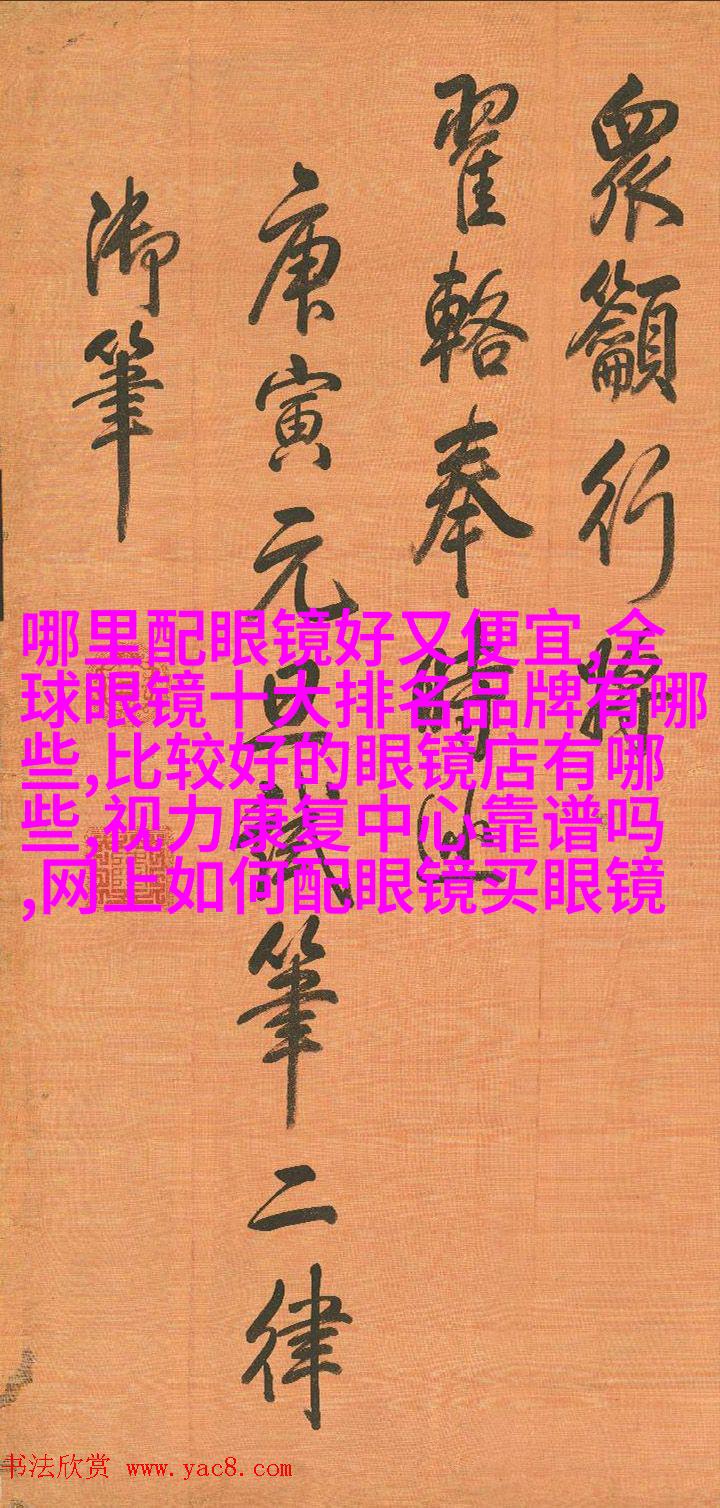 衆籲行將
翟輅奉時巡
庚寅元旦試筆二律
御筆
哪里配眼镜好又便宜,全
球眼镜十大排名品牌有哪
些,比较好的眼镜店有哪
些,视力康复中心靠谱吗
,网上如何配眼镜买眼镜
书法欣赏 www.yac8.com